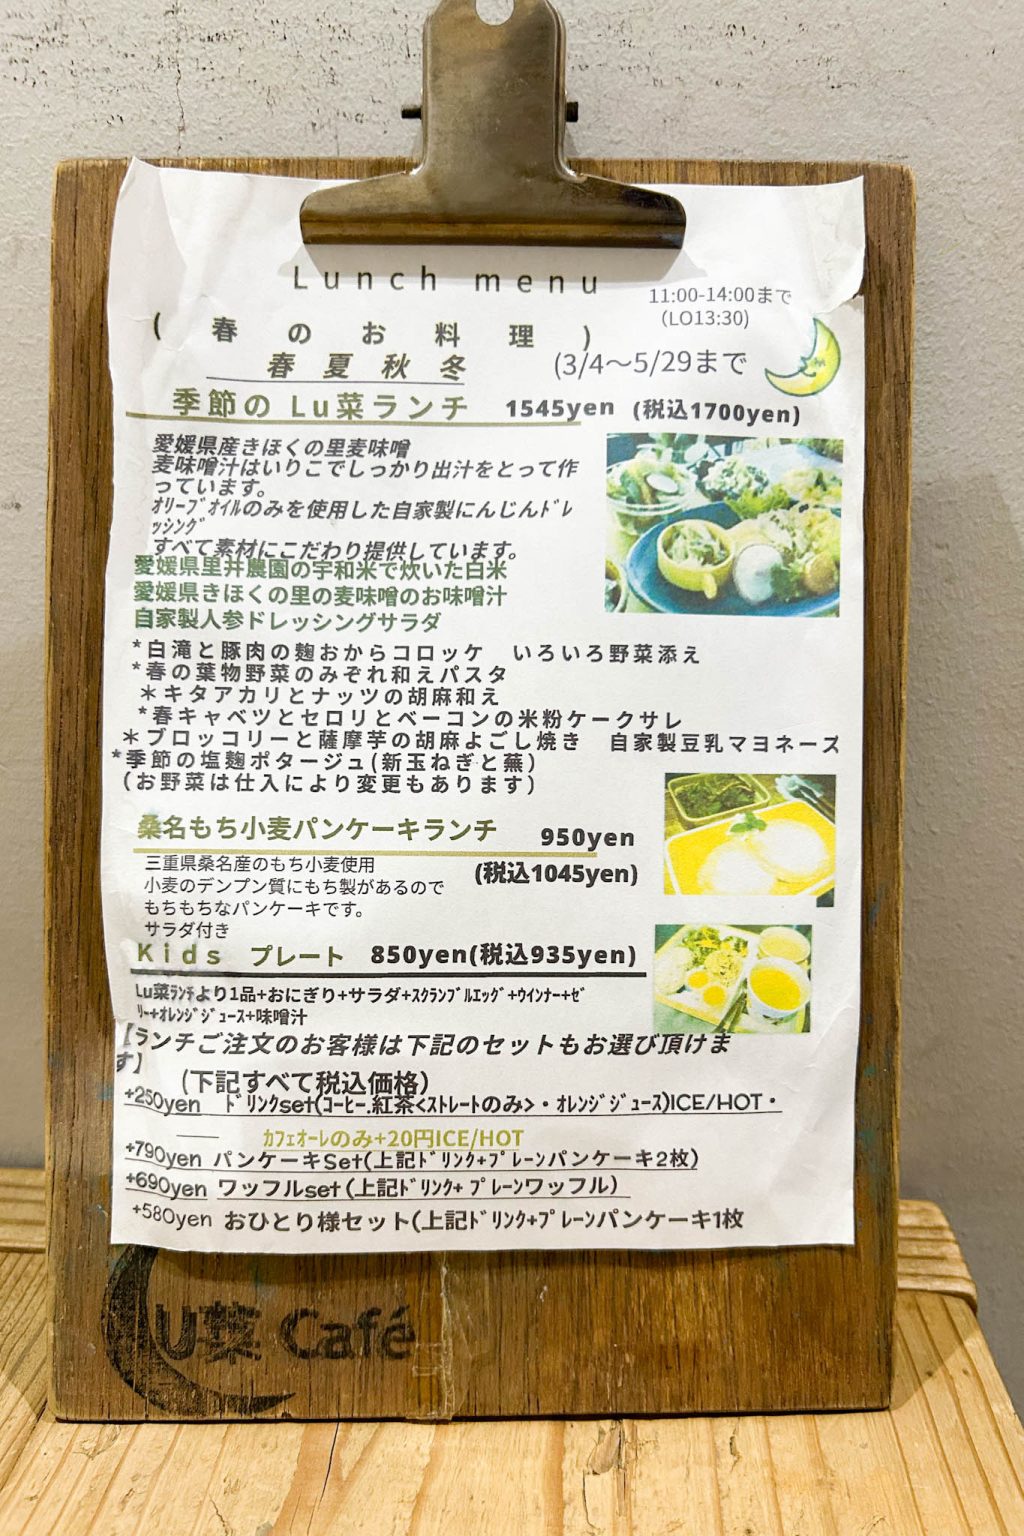 Lunch menu
11:00-14:00まで
(LO13:30)
(春のお料理)
春夏秋冬
(3/4～5/29まで
季節の Lu菜ランチ 1545yen (税込1700yen)
愛媛県産きほくの里麦味噌
麦味噌汁はいりこでしっかり出汁をとって作
っています。
ｵﾘｰﾌﾞｵｲﾙのみを使用した自家製にんじんﾄﾞﾚ
ｯｼﾝｸﾞ
すべて素材にこだわり提供しています。
愛媛県里井農園の宇和米で炊いた白米
愛媛県きほくの里の麦味噌のお味噌汁
自家製人参ドレッシングサラダ
*白滝と豚肉の麹おからコロッケ いろいろ野菜添え
*春の葉物野菜のみぞれ和えパスタ
＊キタアカリとナッツの胡麻和え
*春キャベツとセロリとベーコンの米粉ケークサレ
＊ブロッコリーと薩摩芋の胡麻よごし焼き 自家製豆乳マヨネーズ
*季節の塩麹ポタージュ(新玉ねぎと蕪)
(お野菜は仕入により変更もあります)
桑名もち小麦パンケーキランチ 950yen
(税込1045yen)
三重県桑名産のもち小麦使用
小麦のデンプン質にもち製があるので
もちもちなパンケーキです。
サラダ付き
Kids プレート 850yen(税込935yen)
Lu菜ﾗﾝﾁより1品+おにぎり+サラダ+ｽｸﾗﾝﾌﾞﾙｴｯｸﾞ+ｳｲﾝﾅｰ+ｾﾞ
ﾘｰ+ｵﾚﾝｼﾞｼﾞｭｰｽ+味噌汁
【ランチご注文のお客様は下記のセットもお選び頂けま
す】 (下記すべて税込価格)
+250yen ﾄﾞﾘﾝｸset(ｺｰﾋｰ.紅茶<ｽﾄﾚｰﾄのみ>・ｵﾚﾝｼﾞｼﾞｭｰｽ)ICE/HOT・
ｶﾌｪｵｰﾚのみ+20円ICE/HOT
+790yen パンケーキSet(上記ﾄﾞﾘﾝｸ+ﾌﾟﾚｰﾝパンケーキ2枚)
+690yen ワッフルset(上記ﾄﾞﾘﾝｸ+ﾌﾟﾚｰﾝワッフル)
+580yen おひとり様セット(上記ﾄﾞﾘﾝｸ+ﾌﾟﾚｰﾝパンケーキ1枚
LU菜 Café